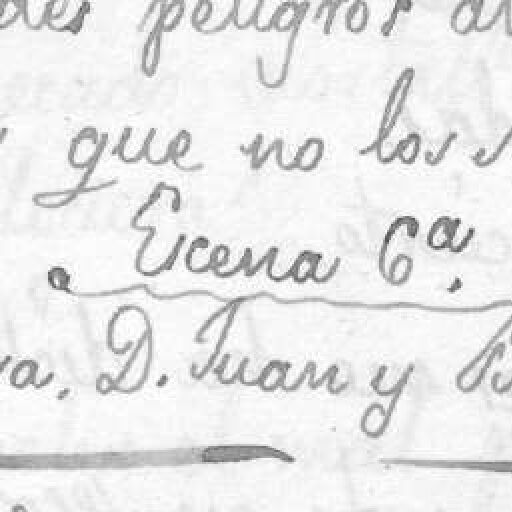 des peligros
que no los
Escena 6ª.
D. Juan y